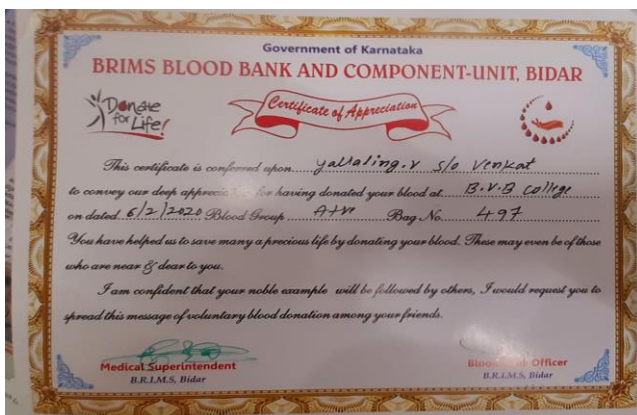 Government of Karnataka
BRIMS BLOOD BANK AND COMPONENT-UNIT, BIDAR
Donate for Life!
Certificate of Appreciation
This certificate is conferred upon yallaling.v s/o Venkat
to convey our deep appreciation for having donated your blood at B.V.B College
on dated 6/2/2020 Blood Group A+ve Bag No. 497
You have helped us to save many a precious life by donating your blood. These may even be of those
who are near & dear to you.
I am confident that your noble example will be followed by others, I would request you to
spread this message of voluntary blood donation among your friends.
Medical Superintendent
B.R.I.M.S, Bidar
Blood Officer
B.R.I.M.S, Bidar